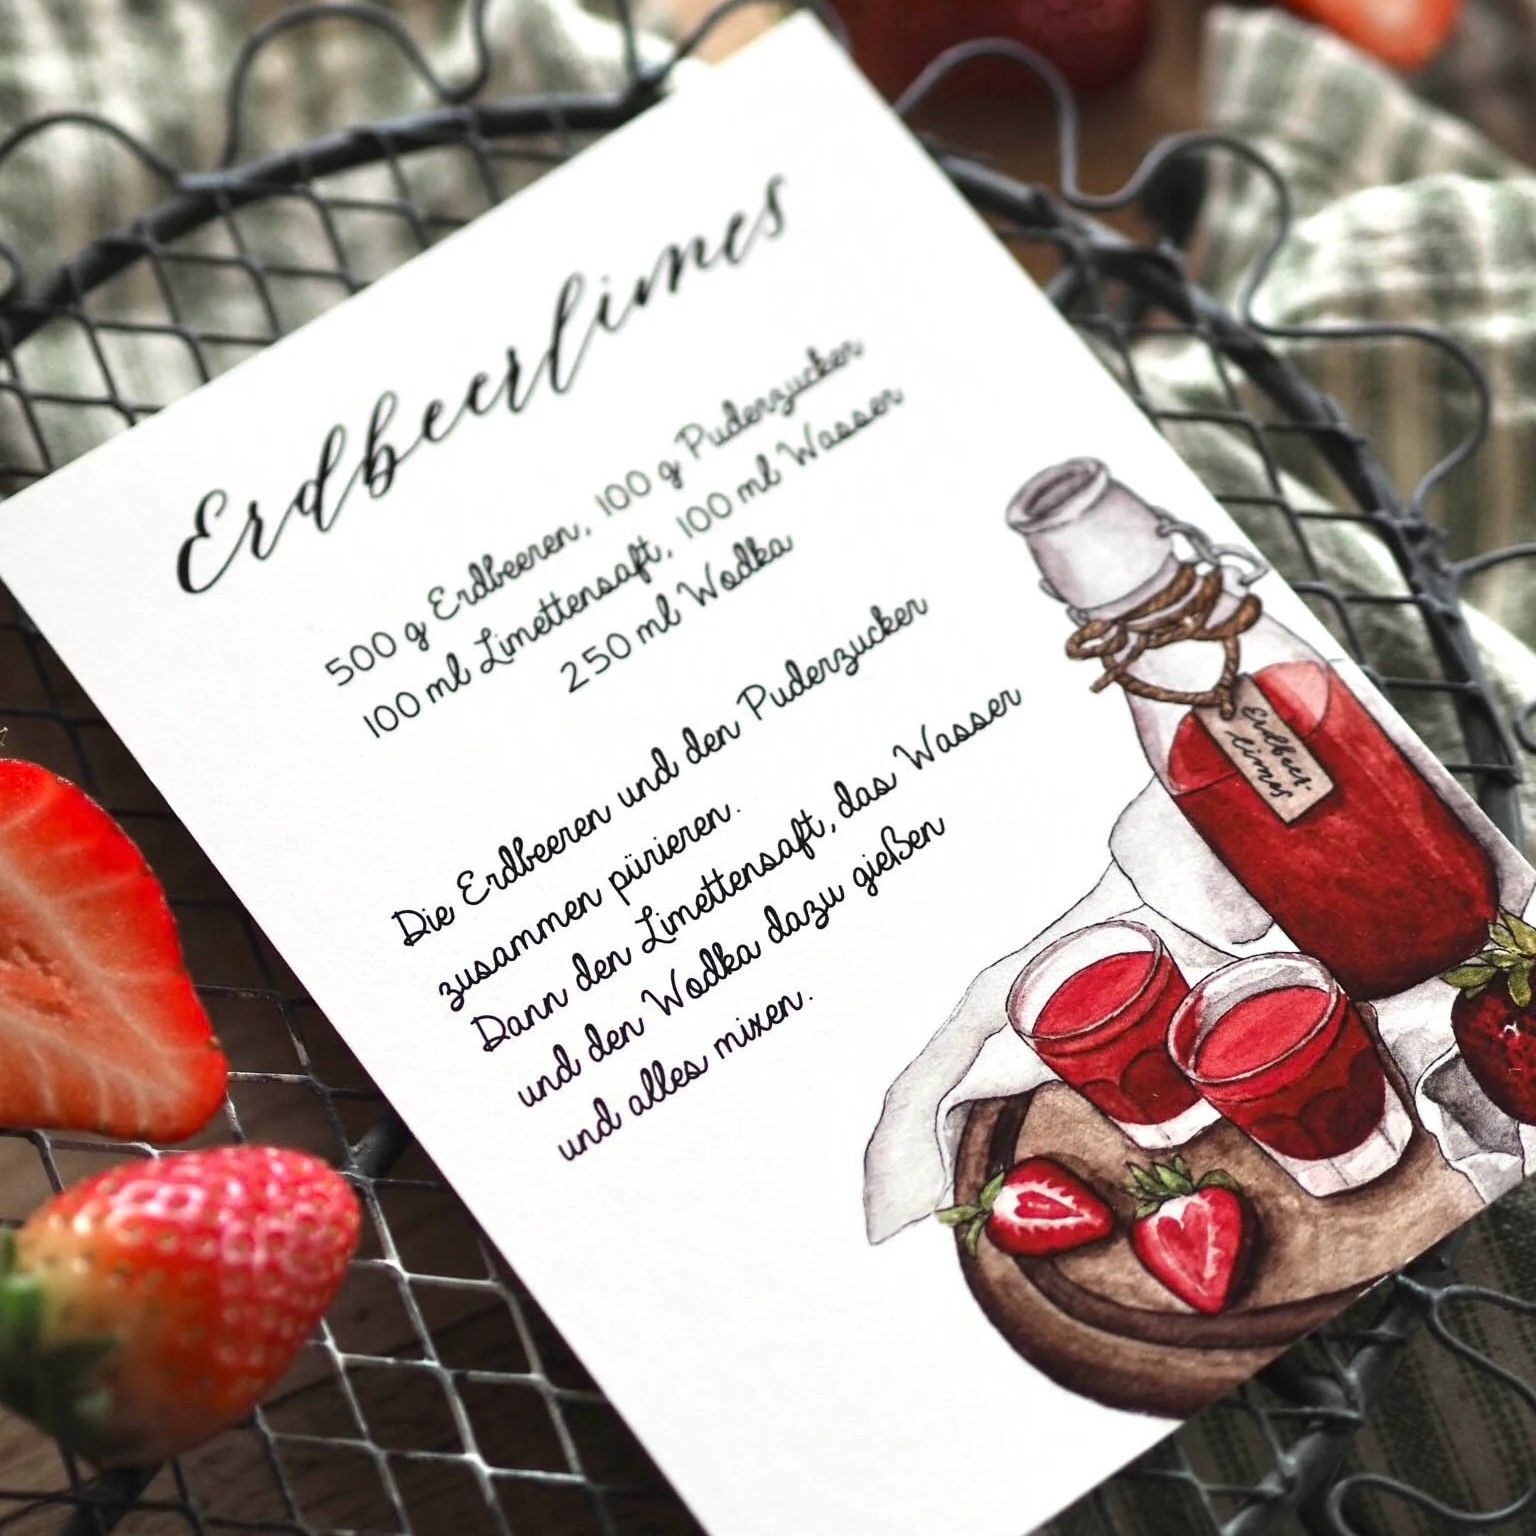 Erdbeerlimes
500 g Erdbeeren, 100 g Puderzucker
100 ml Limettensaft, 100 ml Wasser
250 ml Wodka
Die Erdbeeren und den Puderzucker
zusammen pürieren.
Dann den Limettensaft, das Wasser
und den Wodka dazu gießen
und alles mixen.
Erdbeer
limes